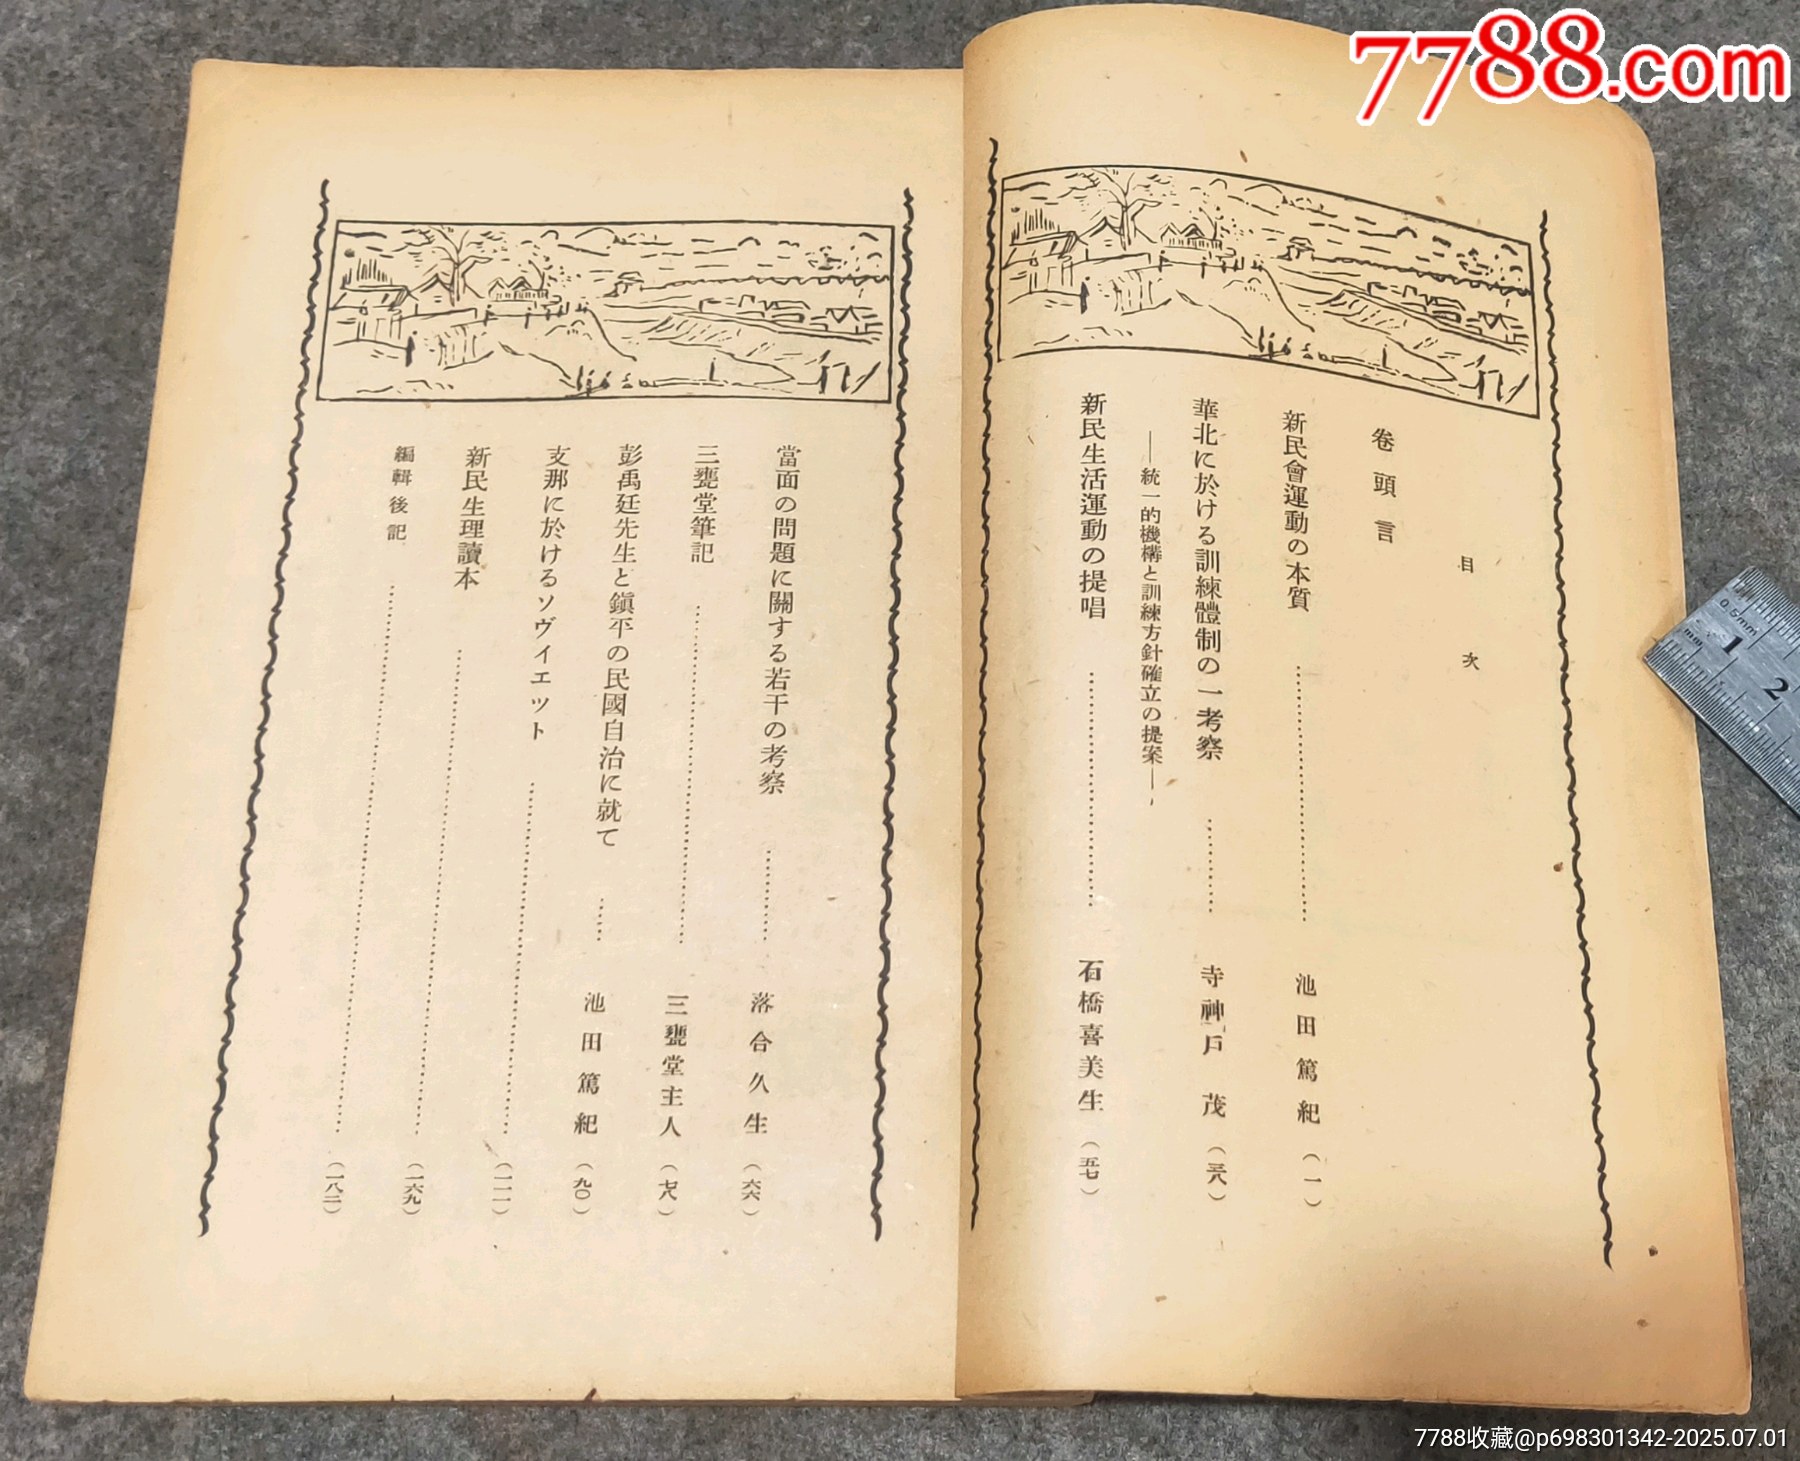 7788.com
目次
卷頭言
新民會運動の本質 池田篤紀 (一)
華北に於ける訓練體制の一考察 寺神戸茂 (三八)
——統一的機構と訓練方針確立の提案——
新民生活運動の提唱 石橋喜美生 (五七)
當面の問題に關する若干の考察 落合久生 (六六)
三甕堂筆記 三甕堂主人 (七八)
彭禹廷先生と鎭平の民國自治に就て 池田篤紀 (九〇)
支那に於けるソヴィエット (一一一)
新民生理讀本 (一六九)
編輯後記 (一八二)
0.5mm
mm
1
2
7788收藏@p698301342-2025.07.01